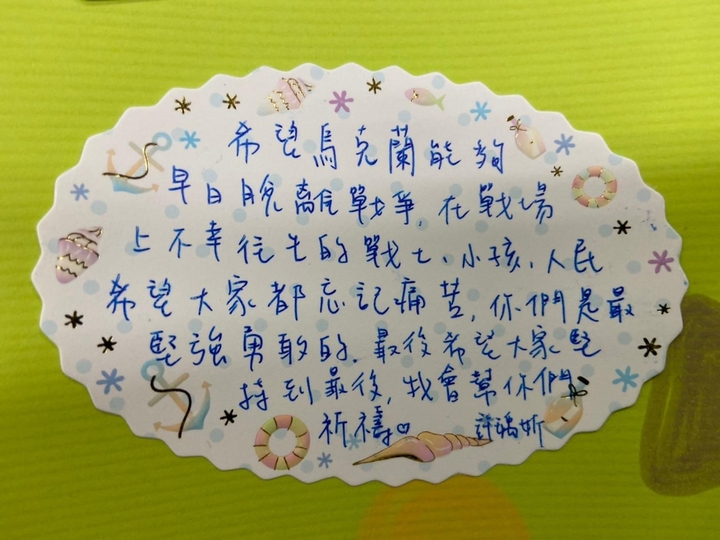 希望烏克蘭能夠
早日脫離戰爭,在戰場
上不幸往生的戰士、小孩、人民
希望大家都忘記痛苦,你們是最
堅強勇敢的.最後希望大家堅
持到最後,我會幫你們
祈禱♡ 許瑀妡